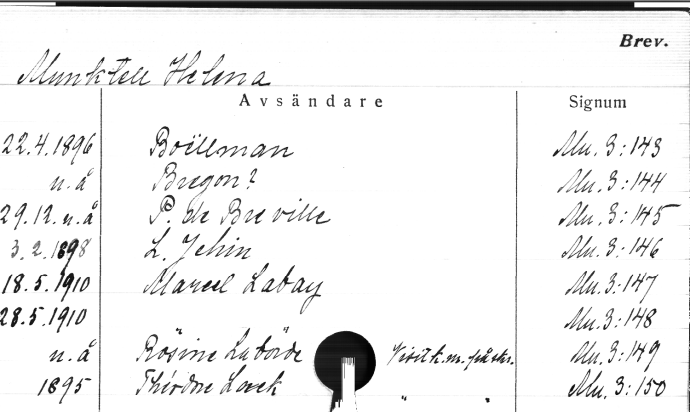 Brev.
Munktell Helena
Avsändare Signum
22.4.1896 Boëllman Mu. 3:143
u.å Bregon? Mu. 3:144
29.12.u.å P. de Breville Mu. 3:145
3.2.1898 L. Jehin Mu. 3:146
18.5.1910 Marcel Labay Mu. 3:147
28.5.1910 Mu. 3:148
u.å Rosine Laborde Visitk.m.påskr. Mu. 3:149
1895 Théodore Lack " " Mu. 3:150